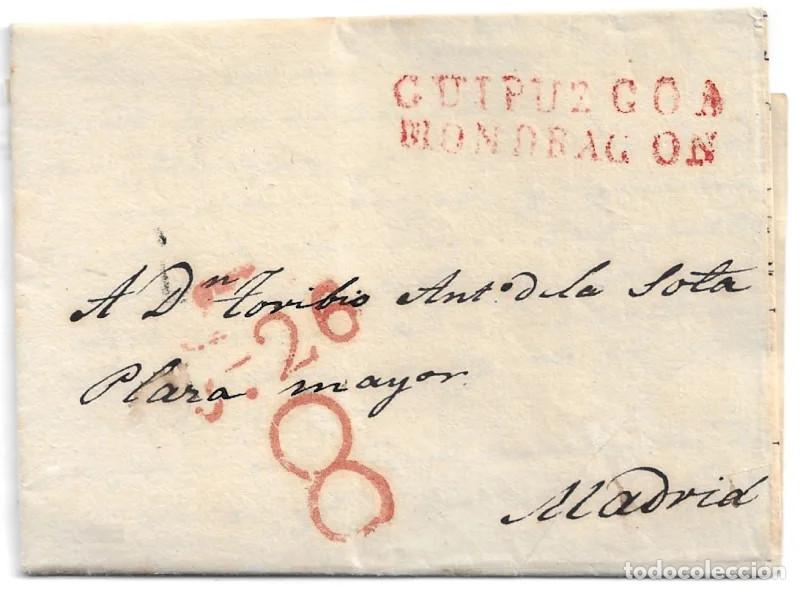 GUIPUZCOA
MONDRAGON
A Dn Toribio Anto. de la Sota
26
Plaza mayor
8
Madrid
todocoleccion